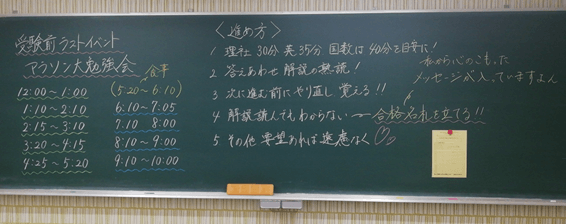 受験前ラストイベント
マラソン大勉強会
12:00~1:00
1:10~2:10
2:15~3:10
3:20~4:15
4:25~5:20
食事
(5:20~6:10)
6:10~7:05
7:10 8:00
8:10~9:00
9:10~10:00
〈進め方〉
1 理社30分 英35分 国数は40分を目安に!
2 答えあわせ 解説の熟読!
3 次に進む前にやり直し 覚える!!
4 解説読んでもわからない~合格名札を立てろ!!
5 その他 要望あれば遠慮なく♡
私から心のこもった
メッセージが入っていますよん